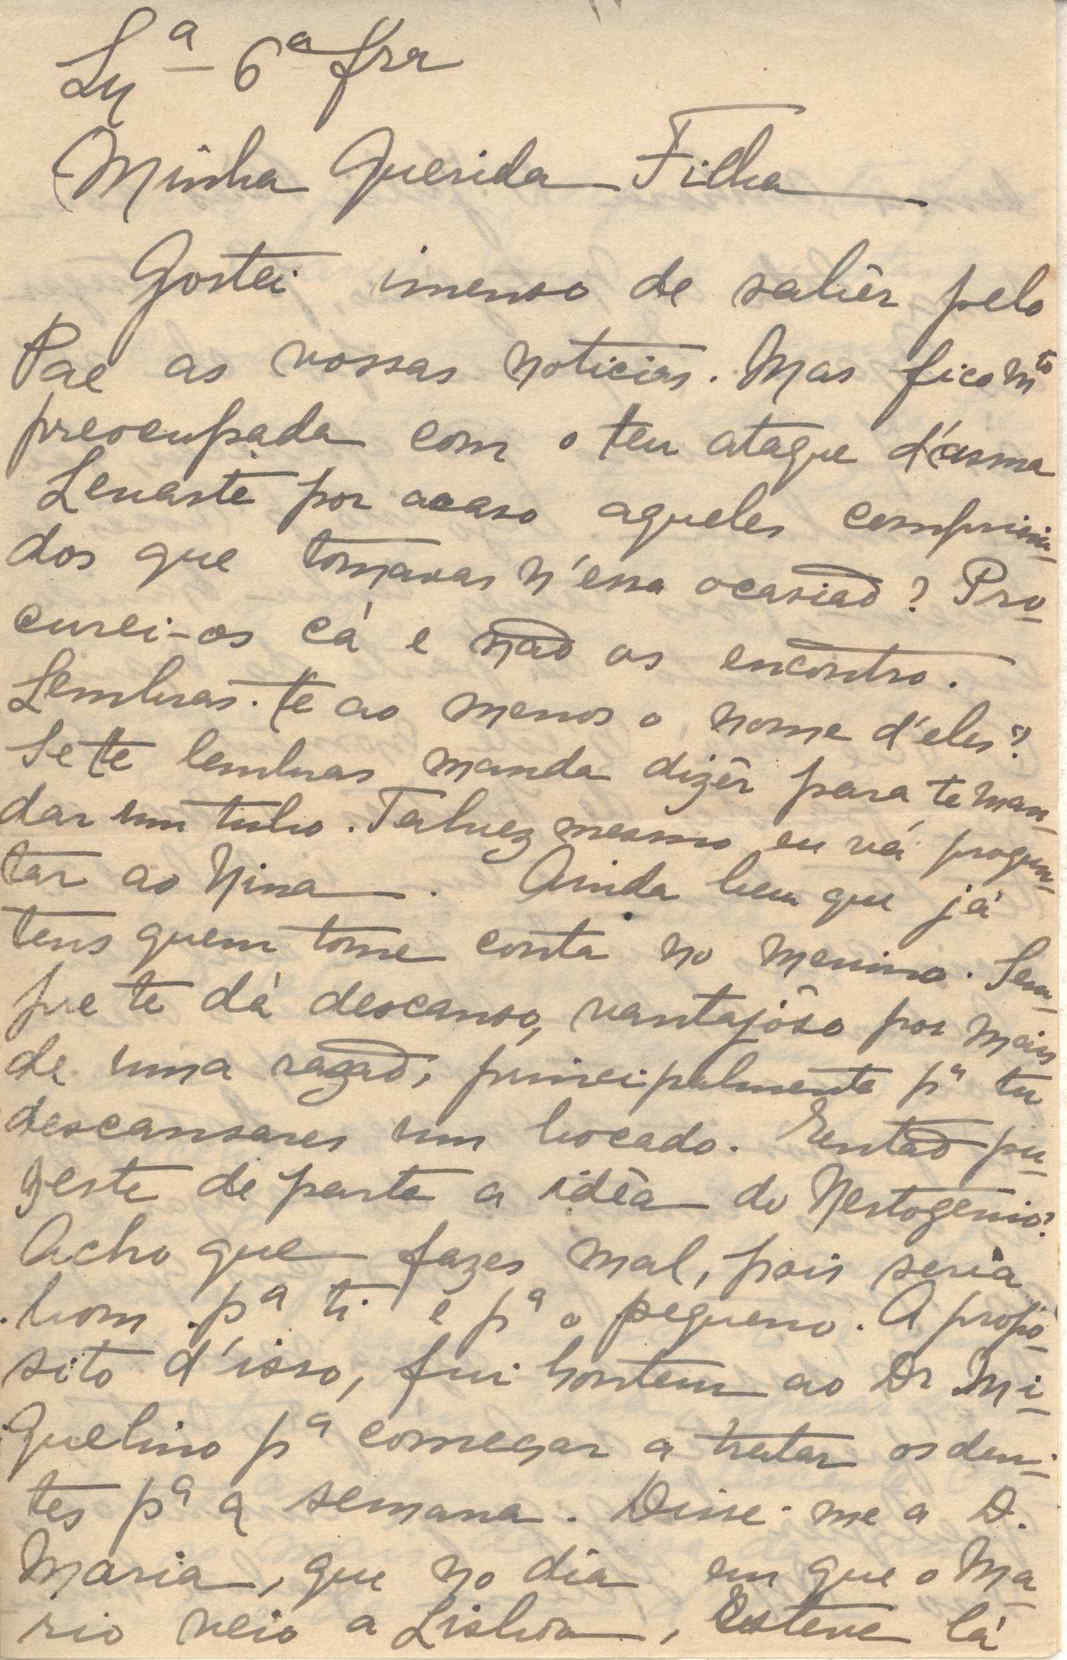 Lxª 6ª fra
Minha Querida Filha
Gostei imenso de sabêr pelo
Pae as vossas noticias. Mas fico mto
preocupada com o teu ataque d'asma
Levaste por acaso aqueles comprimi-
dos que tomavas n'essa ocasiaõ? Pro-
curei-os cá e naõ os encontro.
Lembras-te ao menos o nome d'eles?
Se te lembras manda dizêr para te man-
dar um tubo. Talvez mesmo eu vá pregun-
tar ao Nina. Ainda bem que já
tens quem tome conta no menino. Sem-
pre te dá descanso, vantajôso por mais
de uma razaõ, principalmente pª tu
descansares um bocado. Entaõ pu-
zeste de parte a idêa do Nestogenio?
Acho que fazes mal, pois seria
bom pª ti e pª o pequeno. A propó-
sito d'isso, fui hontem ao Dr Mi-
guelino pª começar a tratar os den-
tes pª a semana. Disse-me a D.
Maria, que no dia em que o Ma-
rio veio a Lisboa, esteve lá